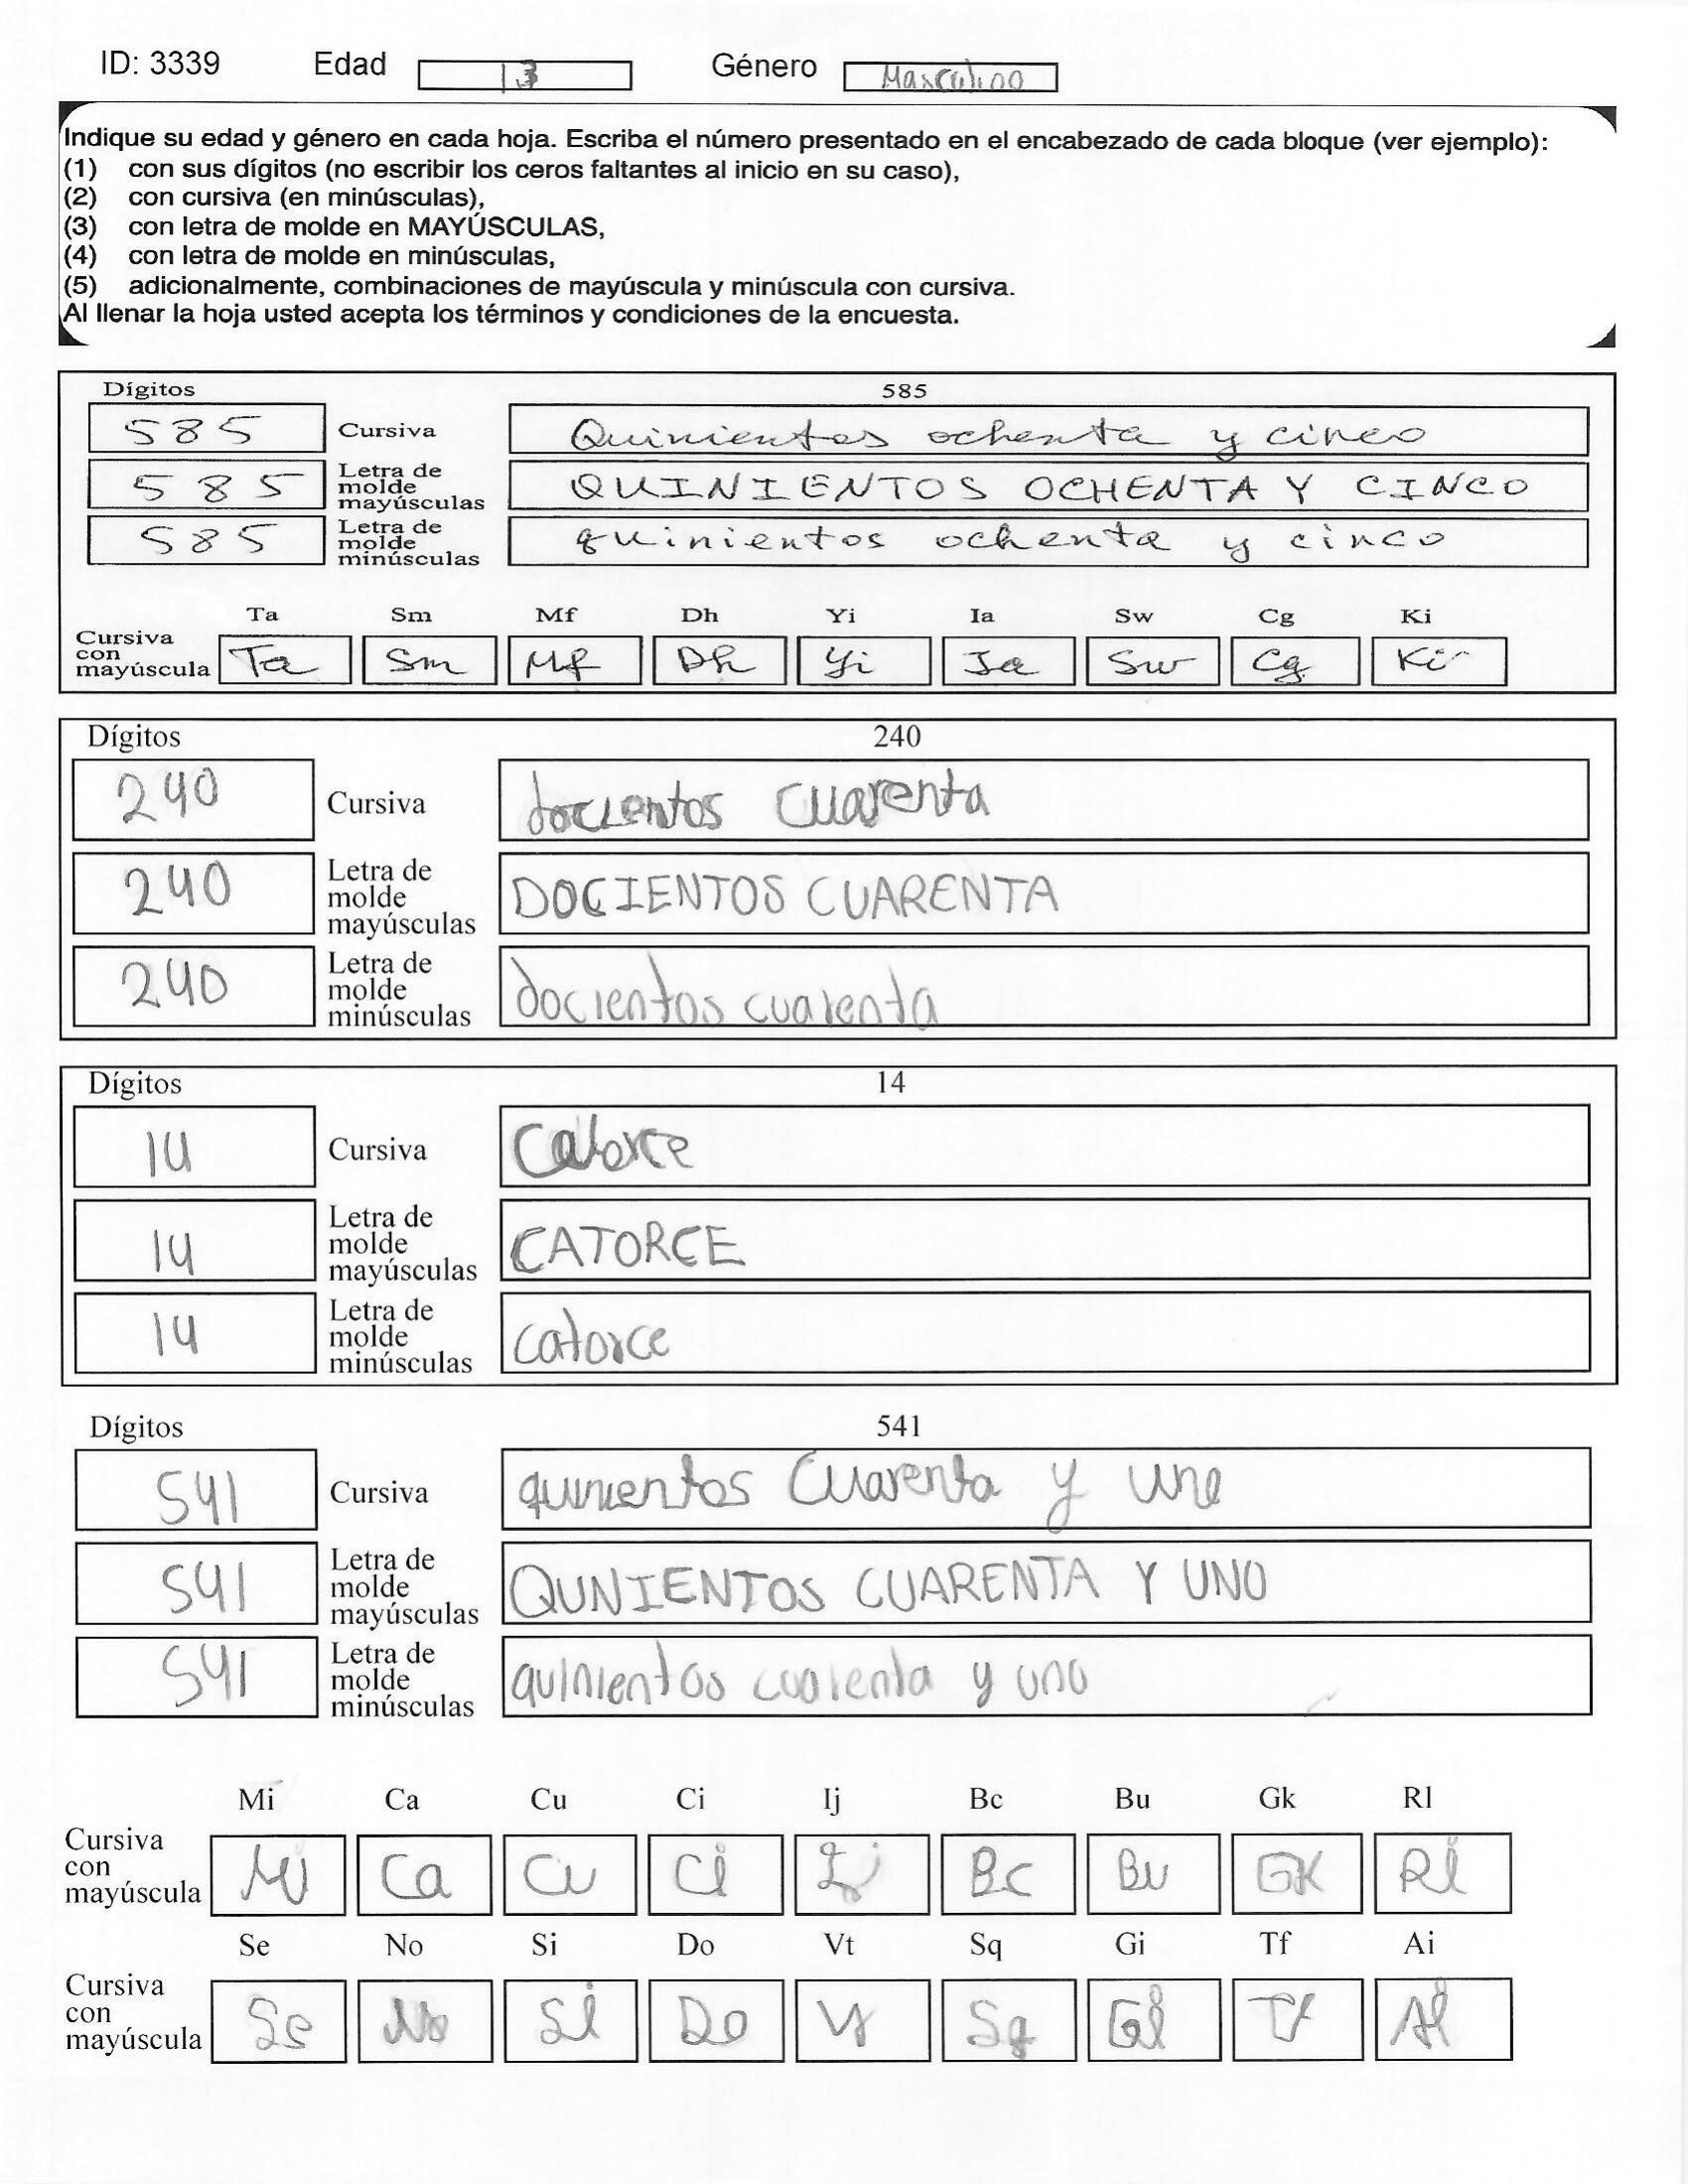 ID: 3339 Edad 13 Género Masculino
Indique su edad y género en cada hoja. Escriba el número presentado en el encabezado de cada bloque (ver ejemplo):
(1) con sus dígitos (no escribir los ceros faltantes al inicio en su caso),
(2) con cursiva (en minúsculas),
(3) con letra de molde en MAYÚSCULAS,
(4) con letra de molde en minúsculas,
(5) adicionalmente, combinaciones de mayúscula y minúscula con cursiva.
Al llenar la hoja usted acepta los términos y condiciones de la encuesta.
Dígitos 585
585 Cursiva Quinientos ochenta y cinco
585 Letra de molde mayúsculas QUINIENTOS OCHENTA Y CINCO
585 Letra de molde minúsculas quinientos ochenta y cinco
Ta Sm Mf Dh Yi Ia Sw Cg Ki
Cursiva con mayúscula Ta Sm Mf Dh Yi Ia Sw Cg Ki
Dígitos 240
240 Cursiva docientos cuarenta
240 Letra de molde mayúsculas DOCIENTOS CUARENTA
240 Letra de molde minúsculas docientos cuarenta
Dígitos 14
14 Cursiva Catorce
14 Letra de molde mayúsculas CATORCE
14 Letra de molde minúsculas catorce
Dígitos 541
541 Cursiva quinientos Cuarenta y uno
541 Letra de molde mayúsculas QUNIENTOS CUARENTA Y UNO
541 Letra de molde minúsculas quinientos cuarenta y uno
Mi Ca Cu Ci Ij Bc Bu Gk Rl
Cursiva con mayúscula Mi Ca Cu Ci Ij Bc Bu GK Rl
Se No Si Do Vt Sq Gi Tf Ai
Cursiva con mayúscula Se No Si Do Vt Sq Gi Tf Ai